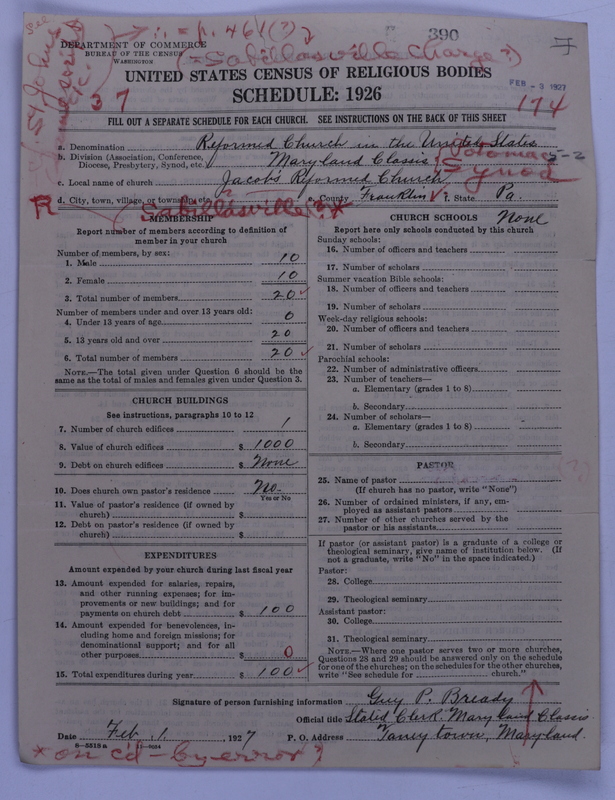 390
DEPARTMENT OF COMMERCE
BUREAU OF THE CENSUS
WASHINGTON
= p. 461(?)
(= Sabillasville Charge?)
See St. John's
37
UNITED STATES CENSUS OF RELIGIOUS BODIES
SCHEDULE: 1926
FEB - 3 1927
174
FILL OUT A SEPARATE SCHEDULE FOR EACH CHURCH. SEE INSTRUCTIONS ON THE BACK OF THIS SHEET
a. Denomination Reformed Church in the United States
b. Division (Association, Conference, Diocese, Presbytery, Synod, etc. Maryland Classis; Potomac Synod 5-2
c. Local name of church Jacob's Reformed Church
d. City, town, village, or township, etc. e. County Franklin f. State Pa.
R Sabillasville? *
MEMBERSHIP
Report number of members according to definition of
member in your church
Number of members, by sex:
1. Male 10
2. Female 10
3. Total number of members 20
Number of members under and over 13 years old:
4. Under 13 years of age 0
5. 13 years old and over 20
6. Total number of members 20
NOTE.—The total given under Question 6 should be
same as the total of males and females given under Question 3.
CHURCH BUILDINGS
See instructions, paragraphs 10 to 12
7. Number of church edifices 1
8. Value of church edifices $ 1000
9. Debt on church edifices $ None
10. Does church own pastor's residence No
Yes or No
11. Value of pastor's residence (if owned by
church) $
12. Debt on pastor's residence (if owned by
church) $
EXPENDITURES
Amount expended by your church during last fiscal year
13. Amount expended for salaries, repairs,
and other running expenses; for im-
provements or new buildings; and for
payments on church debt $ 100
14. Amount expended for benevolences, in-
cluding home and foreign missions; for
denominational support; and for all
other purposes $ 0
15. Total expenditures during year $ 100
CHURCH SCHOOLS None
Report here only schools conducted by this church
Sunday schools:
16. Number of officers and teachers
17. Number of scholars
Summer vacation Bible schools:
18. Number of officers and teachers
19. Number of scholars
Week-day religious schools:
20. Number of officers and teachers
21. Number of scholars
Parochial schools:
22. Number of administrative officers
23. Number of teachers—
a. Elementary (grades 1 to 8)
b. Secondary
24. Number of scholars—
a. Elementary (grades 1 to 8)
b. Secondary
PASTOR
(?)
25. Name of pastor
(If church has no pastor, write "None")
26. Number of ordained ministers, if any, em-
ployed as assistant pastors
27. Number of other churches served by the
pastor or his assistants
If pastor (or assistant pastor) is a graduate of a college or
theological seminary, give name of institution below. (If
not a graduate, write "No" in the space indicated.)
Pastor:
28. College
29. Theological seminary
Assistant pastor:
30. College
31. Theological seminary
NOTE.—Where one pastor serves two or more churches,
Questions 28 and 29 should be answered only on the schedule
for one of the churches; on the schedules for the other churches,
write "See schedule for church."
Signature of person furnishing information Guy P. Bready
Official title Stated Clerk. Maryland Classis
Date Feb. 1, 1927 P. O. Address Taneytown, Maryland.
8—5518a
* on c'd - by error?